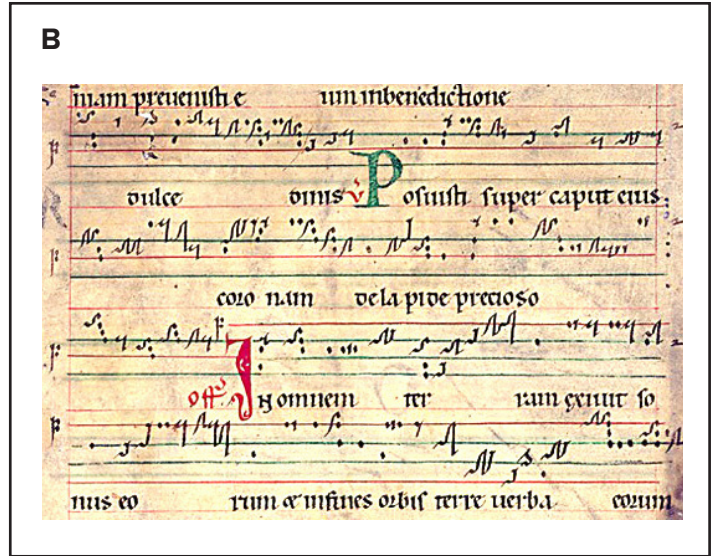 B
niam prevenisti e um inbenedictione
dulce dinis v Posuisti super caput eius
coro nam de la pide precioso
off In omnem ter ram exivit so
nus eo rum & infines orbis terre verba eorum